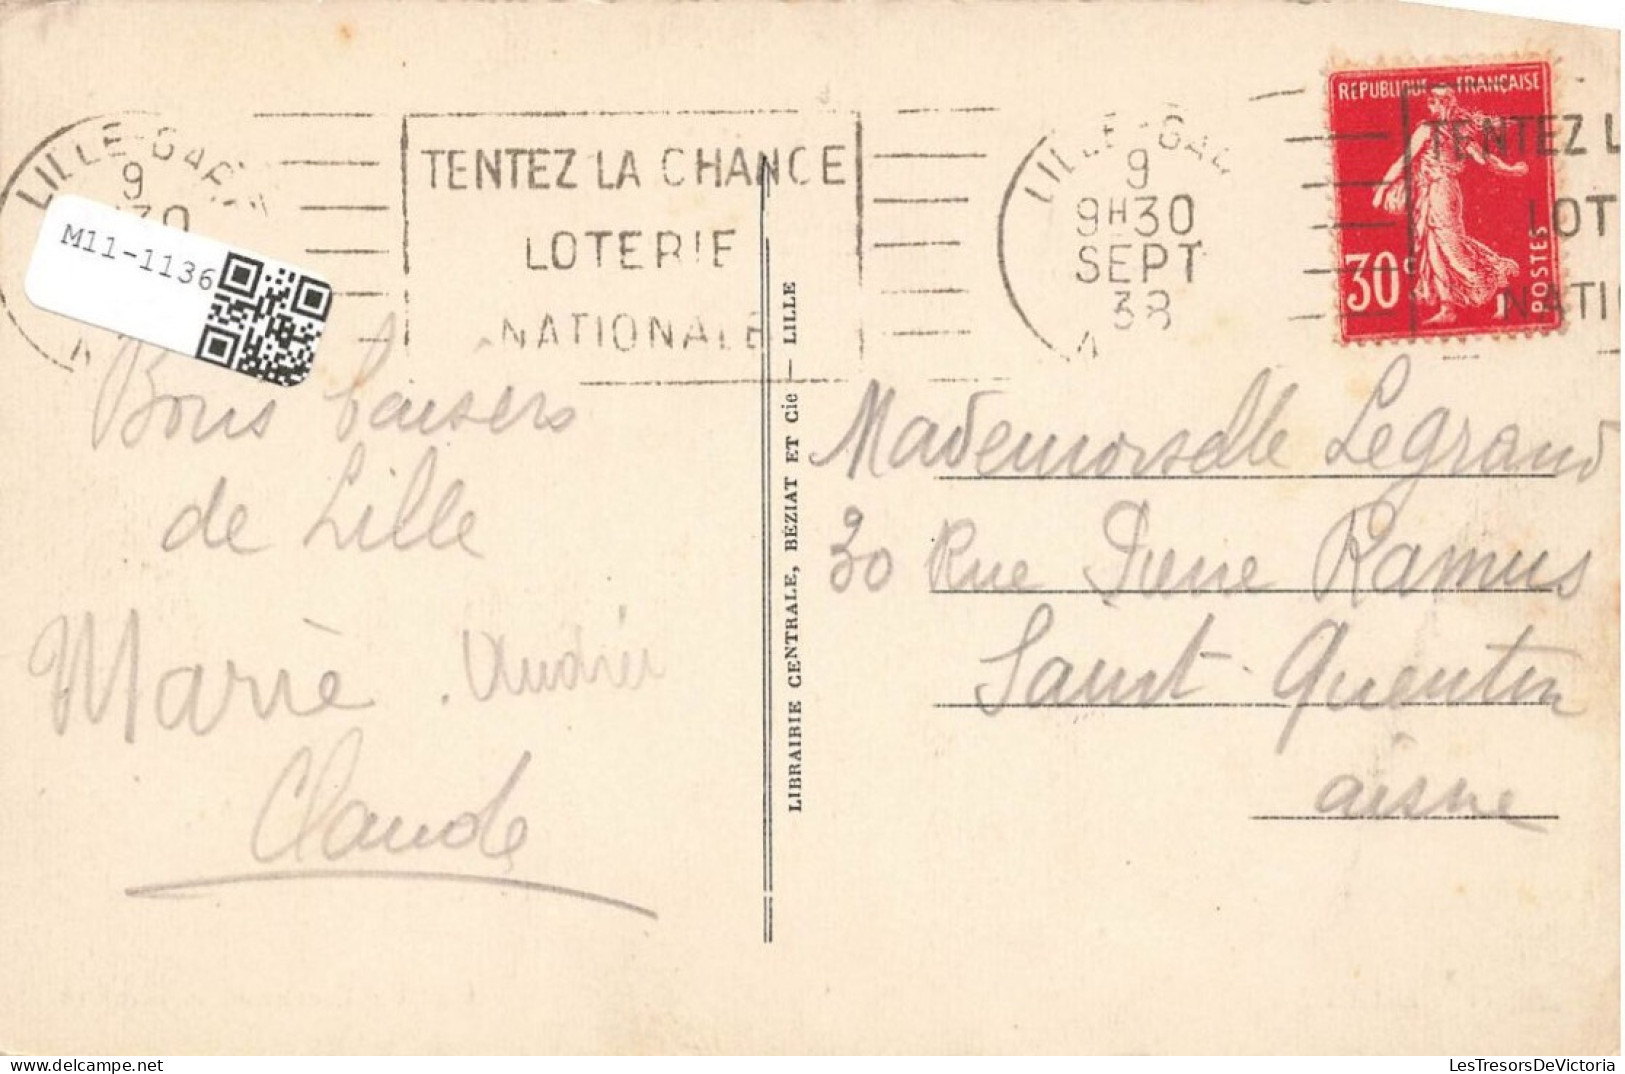 LILLE-GARE
9
30
M11-1136
TENTEZ LA CHANCE
LOTERIE
NATIONALE
LILLE-GARE
9
9H30
SEPT
38
REPUBLIQUE FRANÇAISE
30c
POSTES
TENTEZ L
LOT
NATI
Bons baisers
de Lille
Marie . Andrée
Claude
LIBRAIRIE CENTRALE, BÉZIAT ET Cie — LILLE
Mademoiselle Legrand
30 Rue Pierre Ramus
Saint-Quentin
aisne
LesTresorsDeVictoria